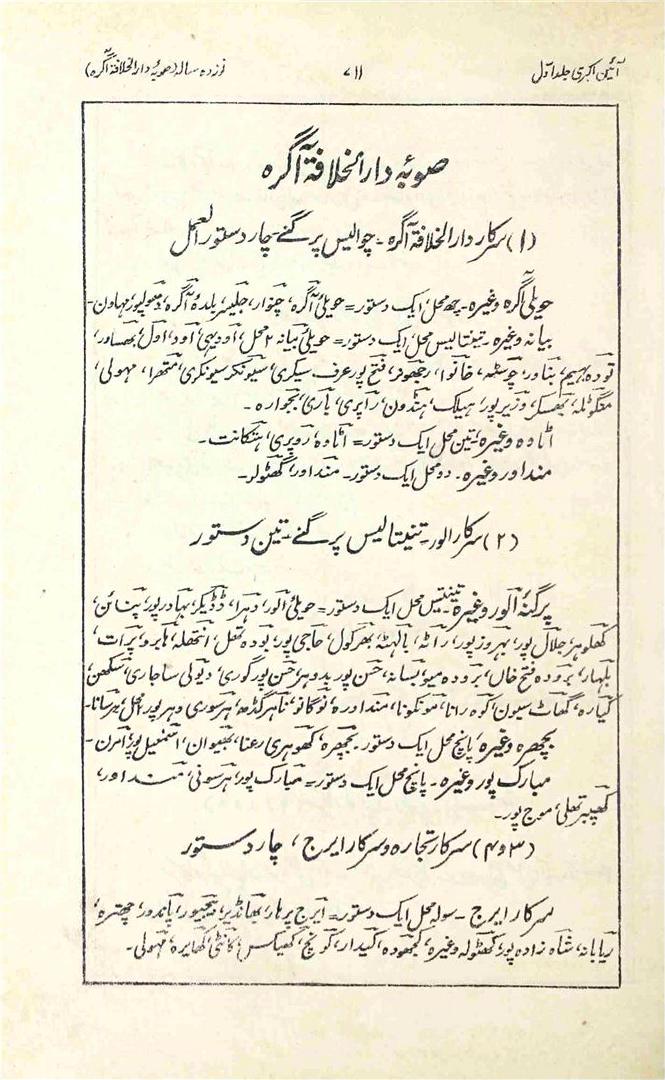 آئین اکبری جلد اول ۷۱۱ نوزدہ سالہ (صوبۂ دار الخلافۃ آگرہ)
صوبۂ دار الخلافۃ آگرہ
(۱) سرکار دار الخلافۃ آگرہ۔ چوالیس پرگنے۔ چار دستور العمل
حویلی آگرہ وغیرہ۔ چھ محل، ایک دستور = حویلی آگرہ، چنوار، جلیسر، بلدۂ آگرہ، دھولپور، مہاون۔
بیانہ وغیرہ۔ تینتالیس محل، ایک دستور = حویلی بیانہ ۲ محل، اودیہی، اود، اول، بھساور،
تودہ بہیم، بناور، چوسٹھ، خانوا، رجھوفر، فتح پور عرف سیکری، سیونکر سیونکری، متھرا، مہولی،
منگوٹلہ، بھسکر، وزیر پور، ہیلک، ہنڈون، راپری، باری، بجوارہ۔
اٹاوہ وغیرہ، تین محل ایک دستور = اٹاوہ، روپری، ہتکانت۔
منداور وغیرہ۔ دو محل ایک دستور۔ منداور، گھٹولر۔
(۲) سرکار الور۔ تینتالیس پرگنے۔ تین دستور
پرگنۂ الور وغیرہ۔ تینتیس محل ایک دستور = حویلی الور، دہرا، ڈڈیکر، بہادر پور، پنائن،
کھلوہر، جلال پور، بہروز پور، راٹھ، بالہٹہ، بھرکول، حاجی پور، بودہ تھل، انتھلہ، ہابرو، پرات،
بلہار، برودہ فتح خاں، برودہ میو، بسانہ، حسن پور بدوہر، حسن پور گوری، دیولی ساجاری، سکھن،
کیارہ، گھاٹ سیون، کوہ رانا، مونکونا، منداورہ، نوگانو، ناہر گڑھ، ہرسوری وہر پور، ۱ محل، ہرسانا۔
بچھرہ وغیرہ، پانچ محل ایک دستور۔ بچھرہ، کھوہری رعنا، بھیوان، اسمٰعیل پور، امرن۔
مبارک پور وغیرہ۔ پانچ محل ایک دستور = مبارک پور، ہرسونی، منداور،
کھیبر تعلی، موج پور۔
(۳ و ۴) سرکار تجارہ و سرکار ایرج، چار دستور
سرکار ایرج۔ سولہ محل ایک دستور = ایرج، پرہار، بھانڈیر، بیجپور، پانڈور، چھترہ،
ریابانہ، شاہ زادہ پور، کھٹولہ وغیرہ، کجھودہ، کیدار، کونچ، کھیکس، کانٹی، کھایرہ، مہولی۔